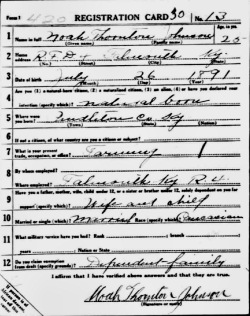 Form 1 420 REGISTRATION CARD 30 No. 13
1 Name in full Noah Thornton Johnson Age, in yrs. 25
(Given name) (Family name)
2 Home address R.F.D. 4 Falmouth Ky.
(No.) (Street) (City) (State)
3 Date of birth July 26 1891
(Month) (Day) (Year)
4 Are you (1) a natural-born citizen, (2) a naturalized citizen, (3) an alien, (4) or have you declared your
intention (specify which)? natural born
5 Where were you born? Pendleton Co. Ky
(Town) (State) (Nation)
6 If not a citizen, of what country are you a citizen or subject?
7 What is your present trade, occupation, or office? Farming 1
8 By whom employed?
Where employed? Falmouth Ky R 4
9 Have you a father, mother, wife, child under 12, or a sister or brother under 12, solely dependent on you for
support (specify which)? Wife and child
10 Married or single (which)? Married Race (specify which)? Caucasian
11 What military service have you had? Rank branch
years Nation or State
12 Do you claim exemption from draft (specify grounds)? Dependent family
I affirm that I have verified above answers and that they are true.
Noah Thornton Johnson
(Signature or mark)